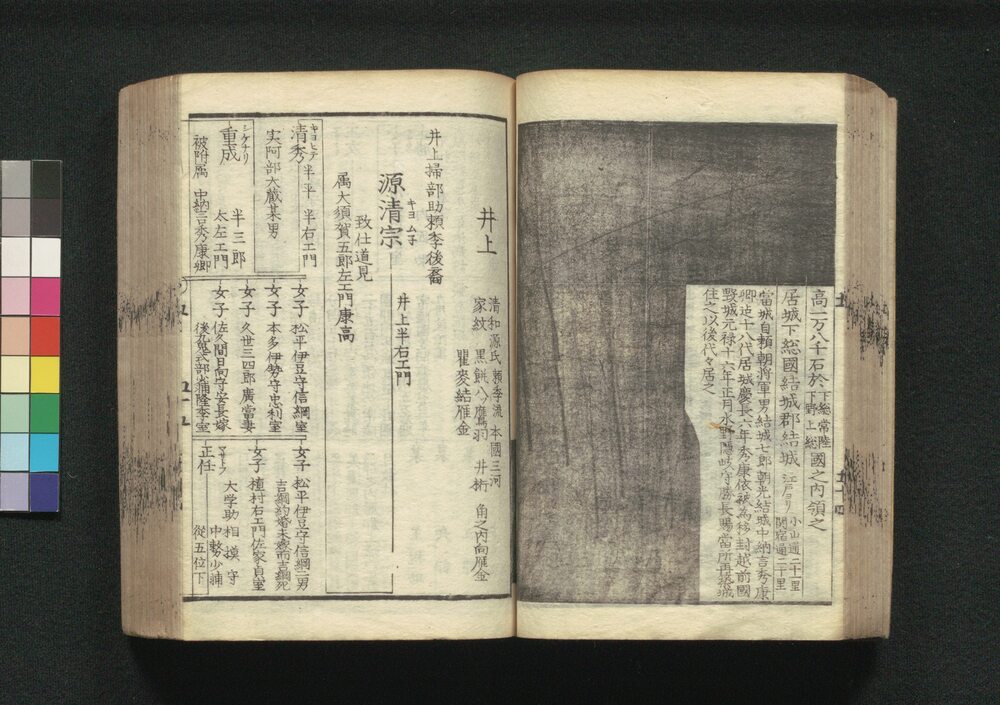 高一万八千石於下総常陸下野上総國之内領之
居城下総國結城郡結城 江戸ヨリ 小山通二十一里 関宿通二十里
當城自頼朝將軍男結城七郎朝光結城中納言秀康
卿迄十八代居城慶長六年秀康依被為移封越前國
暫城元禄十六年正月水野隠岐守勝長賜當所再築城
住之以後代々居之
井上
清和源氏 頼季流 本國三河
家紋 黒餅八ツ鷹羽 井桁 角之内向雁金
瞿麥 結雁金
井上掃部助頼季後裔
源清宗 キヨムネ 井上半右エ門
致仕道見
属大須賀五郎左エ門康高
清秀 キヨヒデ 半平 半右エ門
実阿部大蔵某男
重成 シゲナリ 半三郎 太左エ門
被附属 中納言秀康卿
女子 松平伊豆守信綱室
女子 本多伊勢守忠利室
女子 久世三四郎廣當妻
女子 佐久間日向守安長嫁
後九鬼式部少輔隆季室
女子 松平伊豆守信綱二男
吉綱約婚未嫁而吉綱死
女子 植村右エ門佐家貞室
正任 大学助 相摸守
中務少輔
從五位下